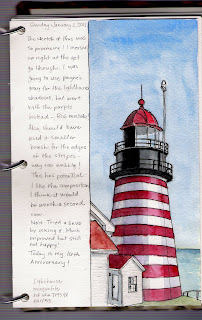 Sunday January 2, 2011
The sketch of this was
so promising! I messed
up right at the get
go though. I was
going to use payne's
gray for the lighthouse
shadows, but went
with the purple
instead.
Also should have
used a smaller
brush for the edges
of the stripes -
way too wobbly!
This has potential.
I like the composition.
I think it would
be worth a second
Next: Tried a
by seeing it. Much
improved but still
not happy!
Today is my
Anniversary!
Lighthouse